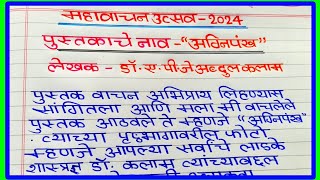 महावाचन उत्सव-2024
पुस्तकाचे नाव-"अग्निपंख"
लेखक - डॉ. ए. पी. जे अब्दुल कलाम
पुस्तक वाचन अभिप्राय लिहण्यास
सांगितला आणि मला मी वाचलेले
पुस्तक आठवले ते म्हणजे "अग्निपंख"
त्याच्या पृष्ठभागावरील फोटो
म्हणजे आपल्या सर्वांचे लाडके
शास्त्रज्ञ डॉ. कलाम त्यांच्याबद्दल